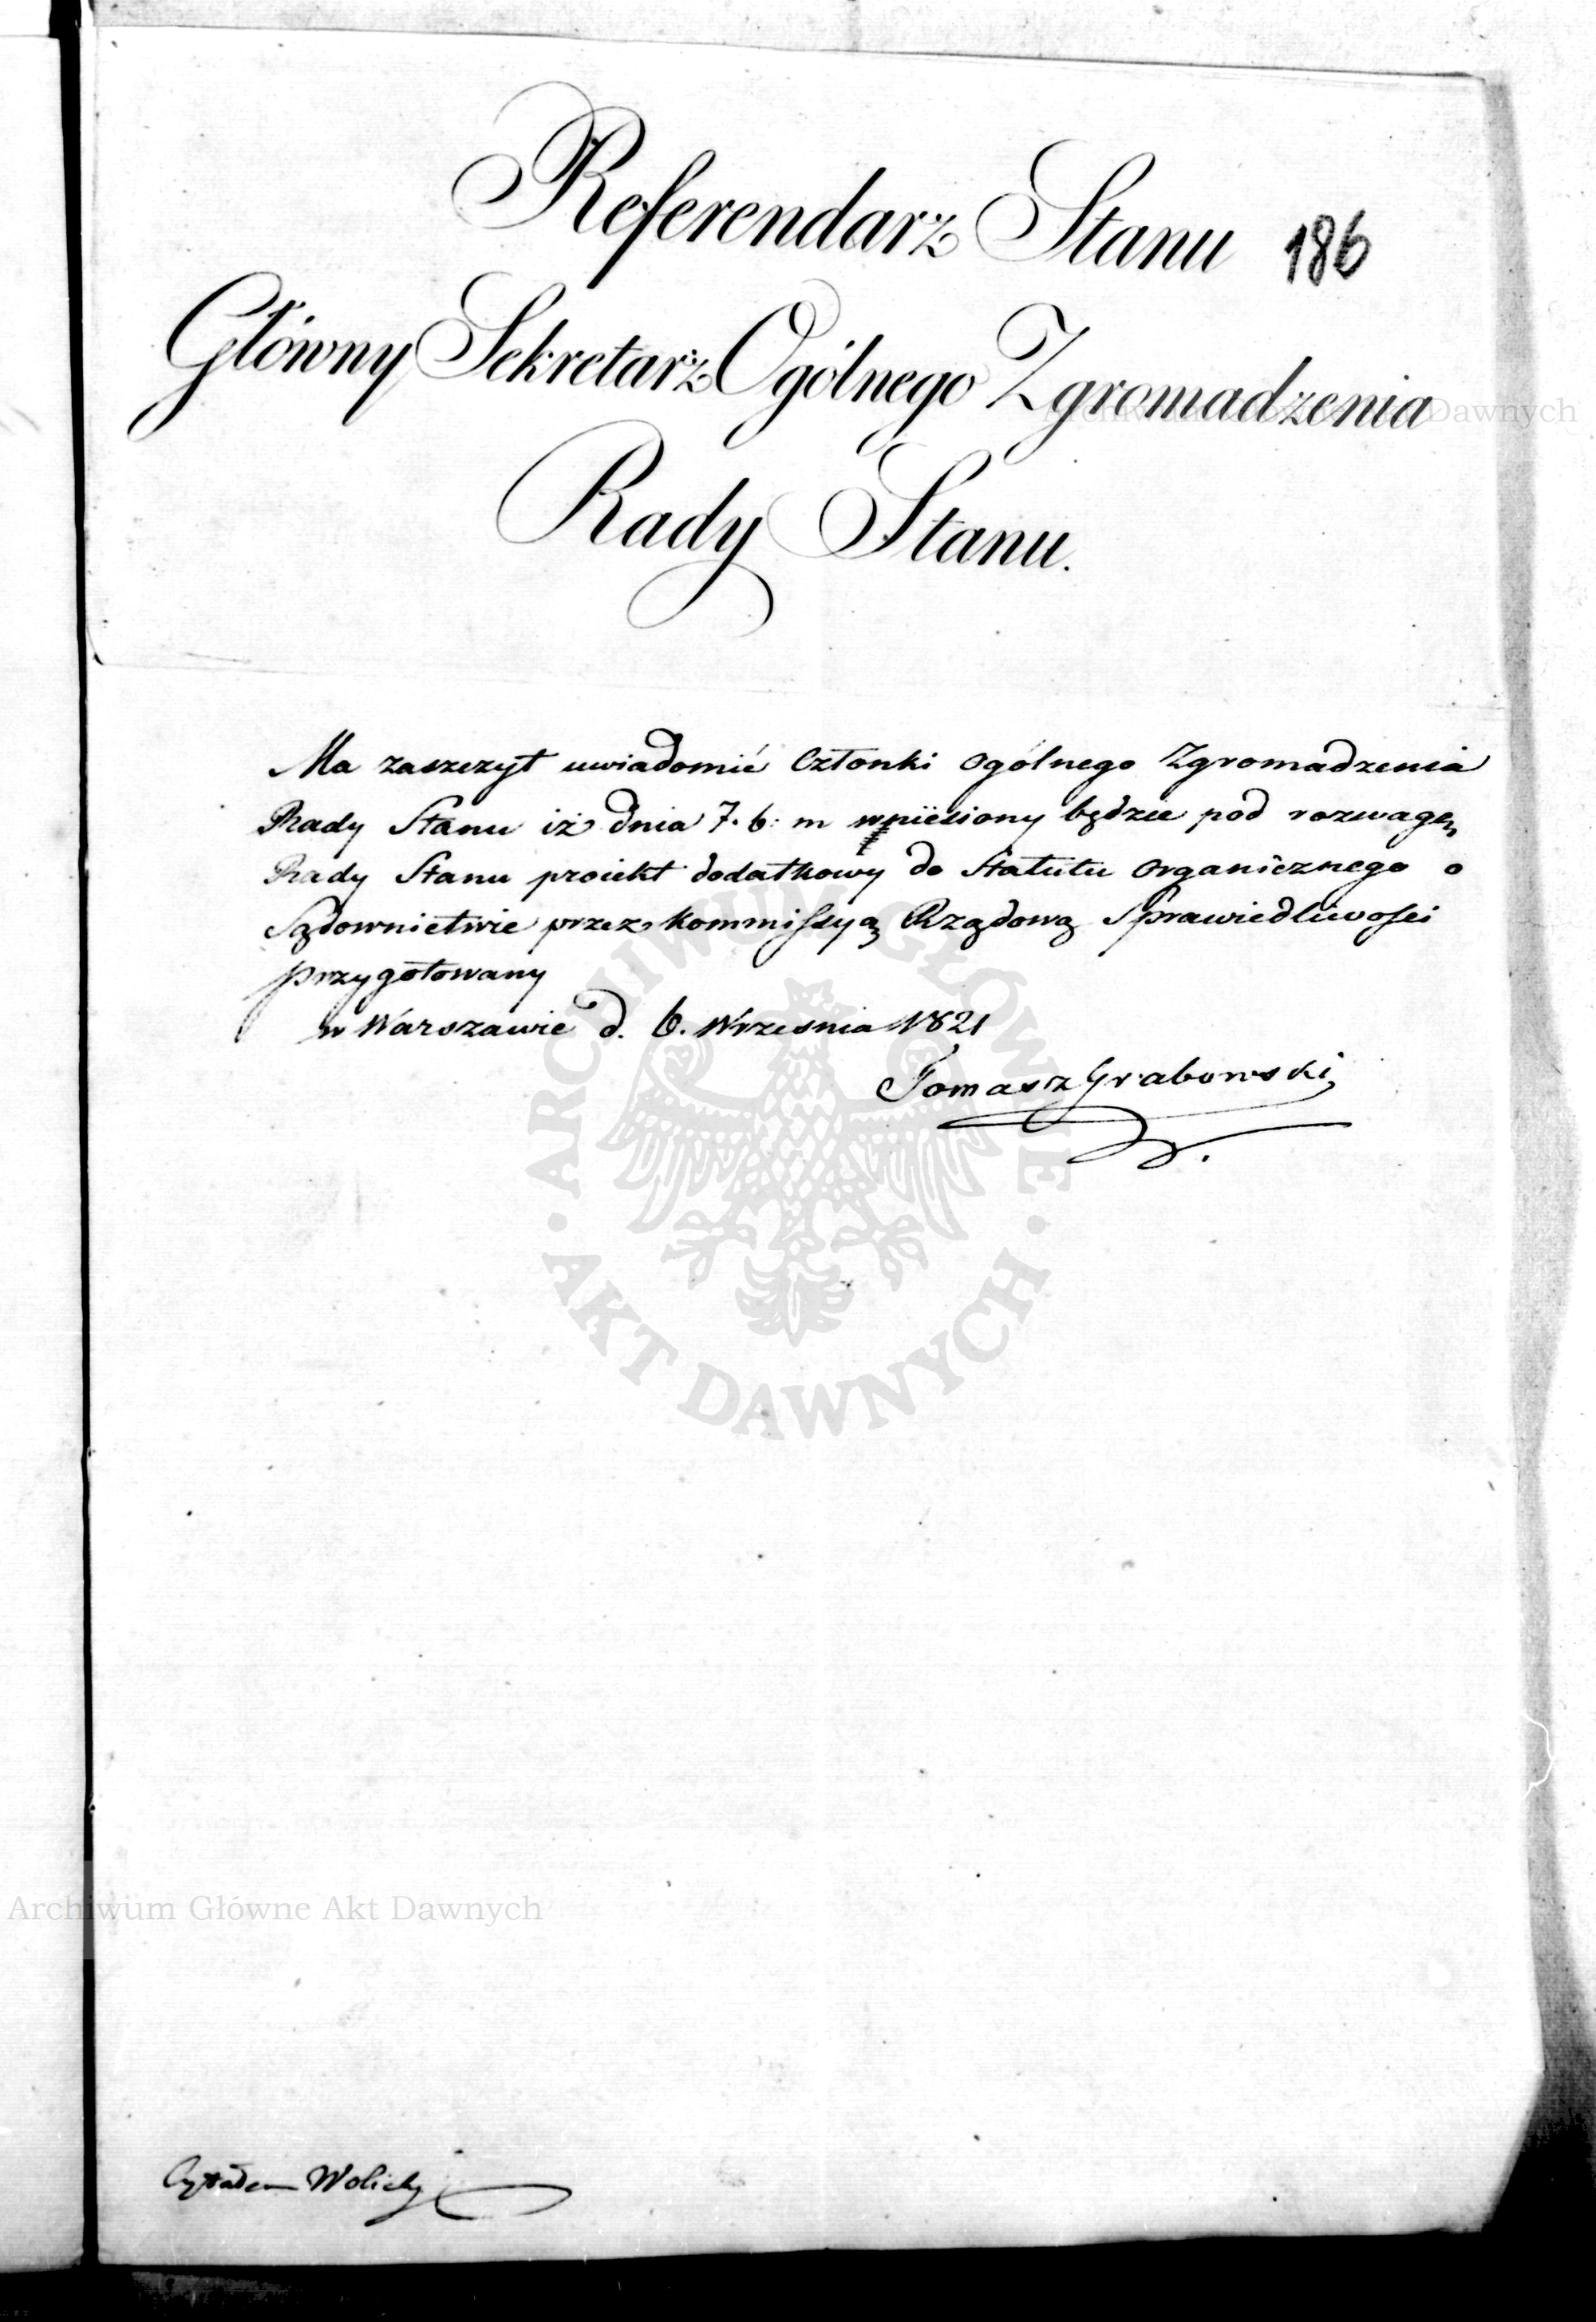 Referendarz Stanu
186
Główny Sekretarz Ogólnego Zgromadzenia
Rady Stanu.
Ma zaszczyt uwiadomić Członki Ogólnego Zgromadzenia
Rady Stanu iż dnia 7. b: m wniesiony będzie pod rozwagę
Rady Stanu proiekt dodatkowy do Statutu Organicznego o
Sądownictwie przez Kommissyą Rządową Sprawiedliwości
przygotowany
w Warszawie d. 6. Wrzesnia 1821
Tomasz Grabowski
ARCHIWUM GŁÓWNE
AKT DAWNYCH
Archiwum Główne Akt Dawnych
Archiwum Główne Akt Dawnych
Czytałem Wolicki